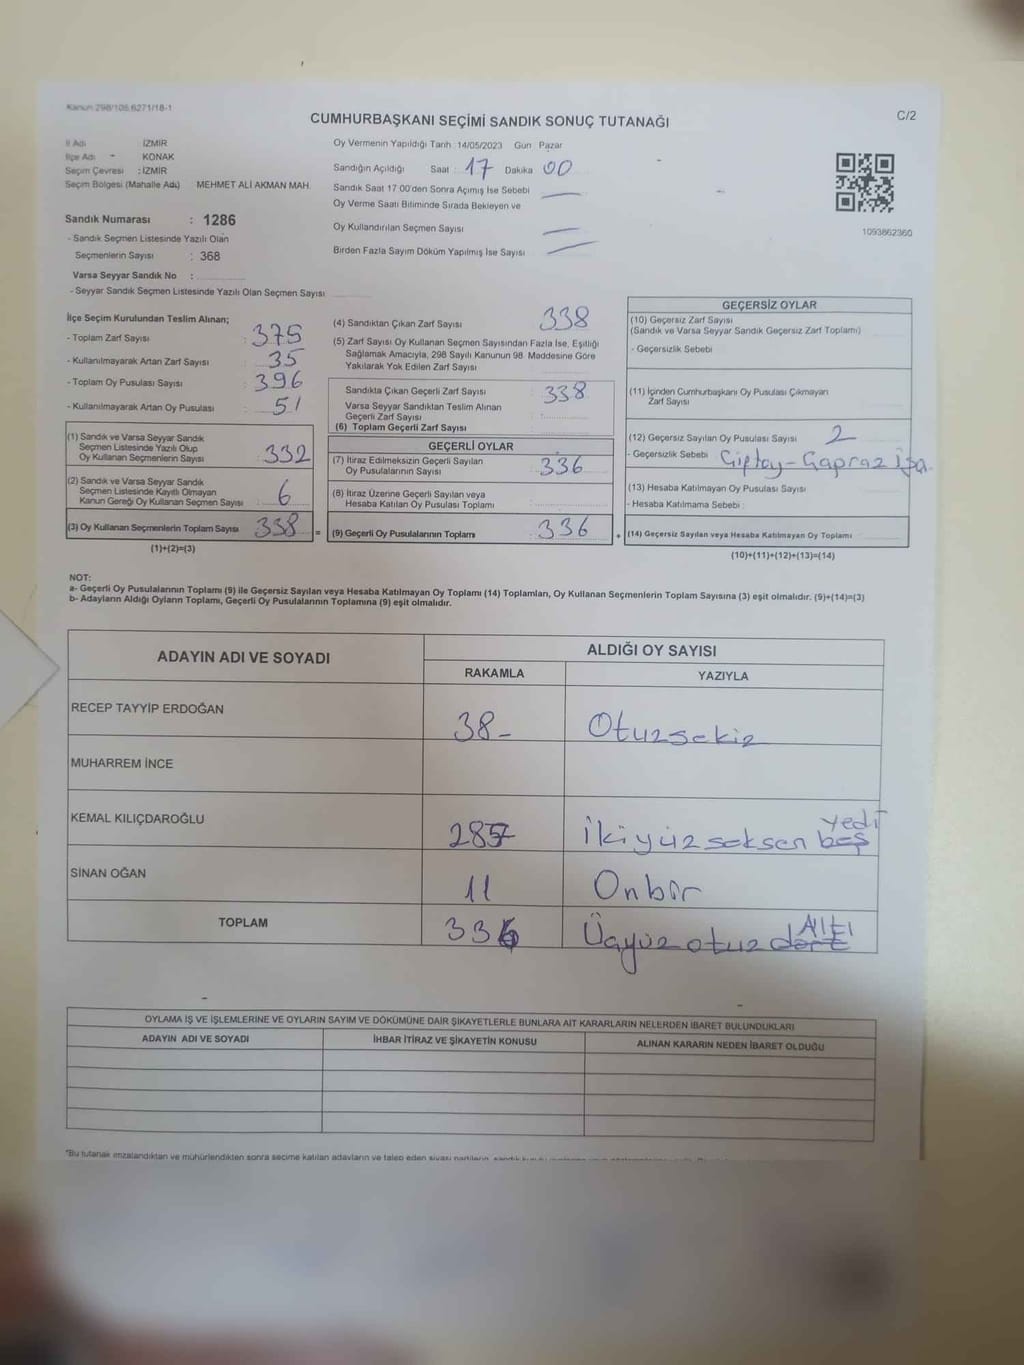 Kanun 298/105.6271/18-1
C/2
CUMHURBAŞKANI SEÇİMİ SANDIK SONUÇ TUTANAĞI
İl Adı İZMİR
İlçe Adı - KONAK
Seçim Çevresi : İZMİR
Seçim Bölgesi (Mahalle Adı) MEHMET ALİ AKMAN MAH.
Sandık Numarası : 1286
- Sandık Seçmen Listesinde Yazılı Olan
Seçmenlerin Sayısı : 368
Varsa Seyyar Sandık No :
- Seyyar Sandık Seçmen Listesinde Yazılı Olan Seçmen Sayısı
Oy Vermenin Yapıldığı Tarih 14/05/2023 Gün Pazar
Sandığın Açıldığı Saat : 17 Dakika 00
Sandık Saat 17 00'den Sonra Açılmış İse Sebebi
Oy Verme Saati Bitiminde Sırada Bekleyen ve
Oy Kullandırılan Seçmen Sayısı
Birden Fazla Sayım Döküm Yapılmış İse Sayısı
1093862360
İlçe Seçim Kurulundan Teslim Alınan;
- Toplam Zarf Sayısı : 375
- Kullanılmayarak Artan Zarf Sayısı : 35
- Toplam Oy Pusulası Sayısı : 396
- Kullanılmayarak Artan Oy Pusulası : 51
(1) Sandık ve Varsa Seyyar Sandık
Seçmen Listesinde Yazılı Olup
Oy Kullanan Seçmenlerin Sayısı : 332
(2) Sandık ve Varsa Seyyar Sandık
Seçmen Listesinde Kayıtlı Olmayan
Kanun Gereği Oy Kullanan Seçmen Sayısı : 6
(3) Oy Kullanan Seçmenlerin Toplam Sayısı 338 =
(1)+(2)=(3)
(4) Sandıktan Çıkan Zarf Sayısı 338
(5) Zarf Sayısı Oy Kullanan Seçmen Sayısından Fazla İse, Eşitliği
Sağlamak Amacıyla, 298 Sayılı Kanunun 98. Maddesine Göre
Yakılarak Yok Edilen Zarf Sayısı
Sandıkta Çıkan Geçerli Zarf Sayısı : 338
Varsa Seyyar Sandıktan Teslim Alınan
Geçerli Zarf Sayısı
(6) Toplam Geçerli Zarf Sayısı
GEÇERLİ OYLAR
(7) İtiraz Edilmeksizin Geçerli Sayılan
Oy Pusulalarının Sayısı : 336
(8) İtiraz Üzerine Geçerli Sayılan veya
Hesaba Katılan Oy Pusulası Toplamı
(9) Geçerli Oy Pusulalarının Toplamı : 336 +
GEÇERSİZ OYLAR
(10) Geçersiz Zarf Sayısı
(Sandık ve Varsa Seyyar Sandık Geçersiz Zarf Toplamı)
- Geçersizlik Sebebi
(11) İçinden Cumhurbaşkanı Oy Pusulası Çıkmayan
Zarf Sayısı
(12) Geçersiz Sayılan Oy Pusulası Sayısı : 2
- Geçersizlik Sebebi
(13) Hesaba Katılmayan Oy Pusulası Sayısı
- Hesaba Katılmama Sebebi :
(14) Geçersiz Sayılan veya Hesaba Katılmayan Oy Toplamı
(10)+(11)+(12)+(13)=(14)
NOT:
a- Geçerli Oy Pusulalarının Toplamı (9) ile Geçersiz Sayılan veya Hesaba Katılmayan Oy Toplamı (14) Toplamları, Oy Kullanan Seçmenlerin Toplam Sayısına (3) eşit olmalıdır. (9)+(14)=(3)
b- Adayların Aldığı Oyların Toplamı, Geçerli Oy Pusulalarının Toplamına (9) eşit olmalıdır.
ADAYIN ADI VE SOYADI
ALDIĞI OY SAYISI
RAKAMLA YAZIYLA
RECEP TAYYİP ERDOĞAN 38- Otuzsekiz
MUHARREM İNCE
KEMAL KILIÇDAROĞLU 287 İkiyüzseksen beş yedi
SİNAN OĞAN 11 Onbir
TOPLAM 336 Üçyüzotuz dört Altı
OYLAMA İŞ VE İŞLEMLERİNE VE OYLARIN SAYIM VE DÖKÜMÜNE DAİR ŞİKAYETLERLE BUNLARA AİT KARARLARIN NELERDEN İBARET BULUNDUKLARI
ADAYIN ADI VE SOYADI İHBAR İTİRAZ VE ŞİKAYETİN KONUSU ALINAN KARARIN NEDEN İBARET OLDUĞU
*Bu tutanak imzalandıktan ve mühürlendikten sonra seçime katılan adayların ve talep eden siyasi partilerin,